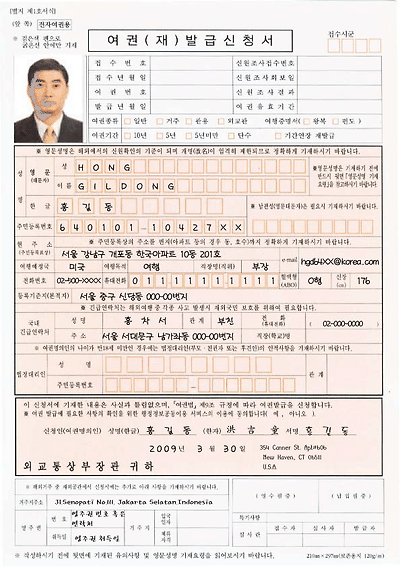 [별지 제1호서식]
(앞 쪽) 전자여권용
※ 검은색 펜으로 굵은선 안에만 기재
여 권 ( 재 ) 발 급 신 청 서
접수시군
접 수 번 호 신원조사접수번호
접 수 년 월 일 신원조사회보일
여 권 번 호 신원조사결과
발 급 년 월 일 여 권 유 효 기 간
여권종류 일반 거주 관용 외교관 여행증명서( 왕복 편도 )
여권기간 10년 5년 5년미만 단수 기간연장 재발급
※ 영문성명은 해외에서의 신원확인의 기준이 되며 개명(改名)이 엄격히 제한되므로 정확하게 기재하시기 바랍니다.
성 명 영 문 (대문자) 성 HONG
이 름 GILDONG
※영문성명은 기재하기 전에 반드시 뒷면 「영문성명 기재요령」을 참고하시기 바랍니다.
한 글 홍 길 동
주민등록번호 640101-10427XX
현 주 소 (주민등록표상) ※ 주민등록표상의 주소를 번지(아파트 등의 경우 동, 호수)까지 정확하게 기재하시기 바랍니다.
서울 강남구 개포동 한국아파트 10동 201호
e-mail hgd64XX@korea.com
여행예정국 미국 여행목적 여행 직장명(직위) 부장
전화번호 02-500-XXXX 휴대전화 011111111111 혈액형 (ABO) O형 신장 (cm) 176
등록기준지(본적지) 서울 중구 신당동 000-00번지
※ 긴급연락처는 해외여행 중 각종 사고 발생시 재외국민 보호를 위하여 필요합니다.
국내 긴급연락처 성 명 홍 차 서 관계 부친 전 화 (휴대전화) ( 02-000-0000 )
주 소 서울 서대문구 남가좌동 000-00번지 직장(학교)명
※ 여권명의인의 나이가 만18세 미만인 경우에는 법정대리인(부모·친권자 또는 후견인)의 인적사항을 기재하시기 바랍니다.
법정대리인 성 명 관 계
주민등록번호
이 신청서에 기재한 내용은 사실과 틀림없으며, 「여권법」 제9조 규정에 따라 여권발급을 신청합니다.
※ 여권 발급에 필요한 사항의 확인을 위한 행정정보공동이용 서비스의 이용에 동의합니다( 여 , 아니오 ).
신청인(여권명의인) 성명(한글) 홍 길 동 (한자) 洪 吉 童 서명 홍 길 동
2009 년 3 월 30 일
354 Canner St. Apt#606
New Haven, CT 06511
U.S.A
외 교 통 상 부 장 관 귀 하
※ 해외거주 중 재외공관에서 신청하시는 경우에는 추가로 아래 사항을 기재하시기 바랍니다.
거주지주소 Jl.Senopati No.111, Jakarta Selatan,Indonesia
영 주 권 번 호 영주권번호 혹은 연락처
취득일 영주권취득일
거 주 지 입국일자
체류자격
( 영 수 필 증 ) ( 납 입 필 증 )
특기사항
심 사 관 접 수 자 심 사 자 발 급 자
※ 작성하시기 전에 뒷면에 기재된 유의사항 및 영문성명 기재요령을 읽어보시기 바랍니다.
210㎜×297㎜(보존용지 120g/㎡)